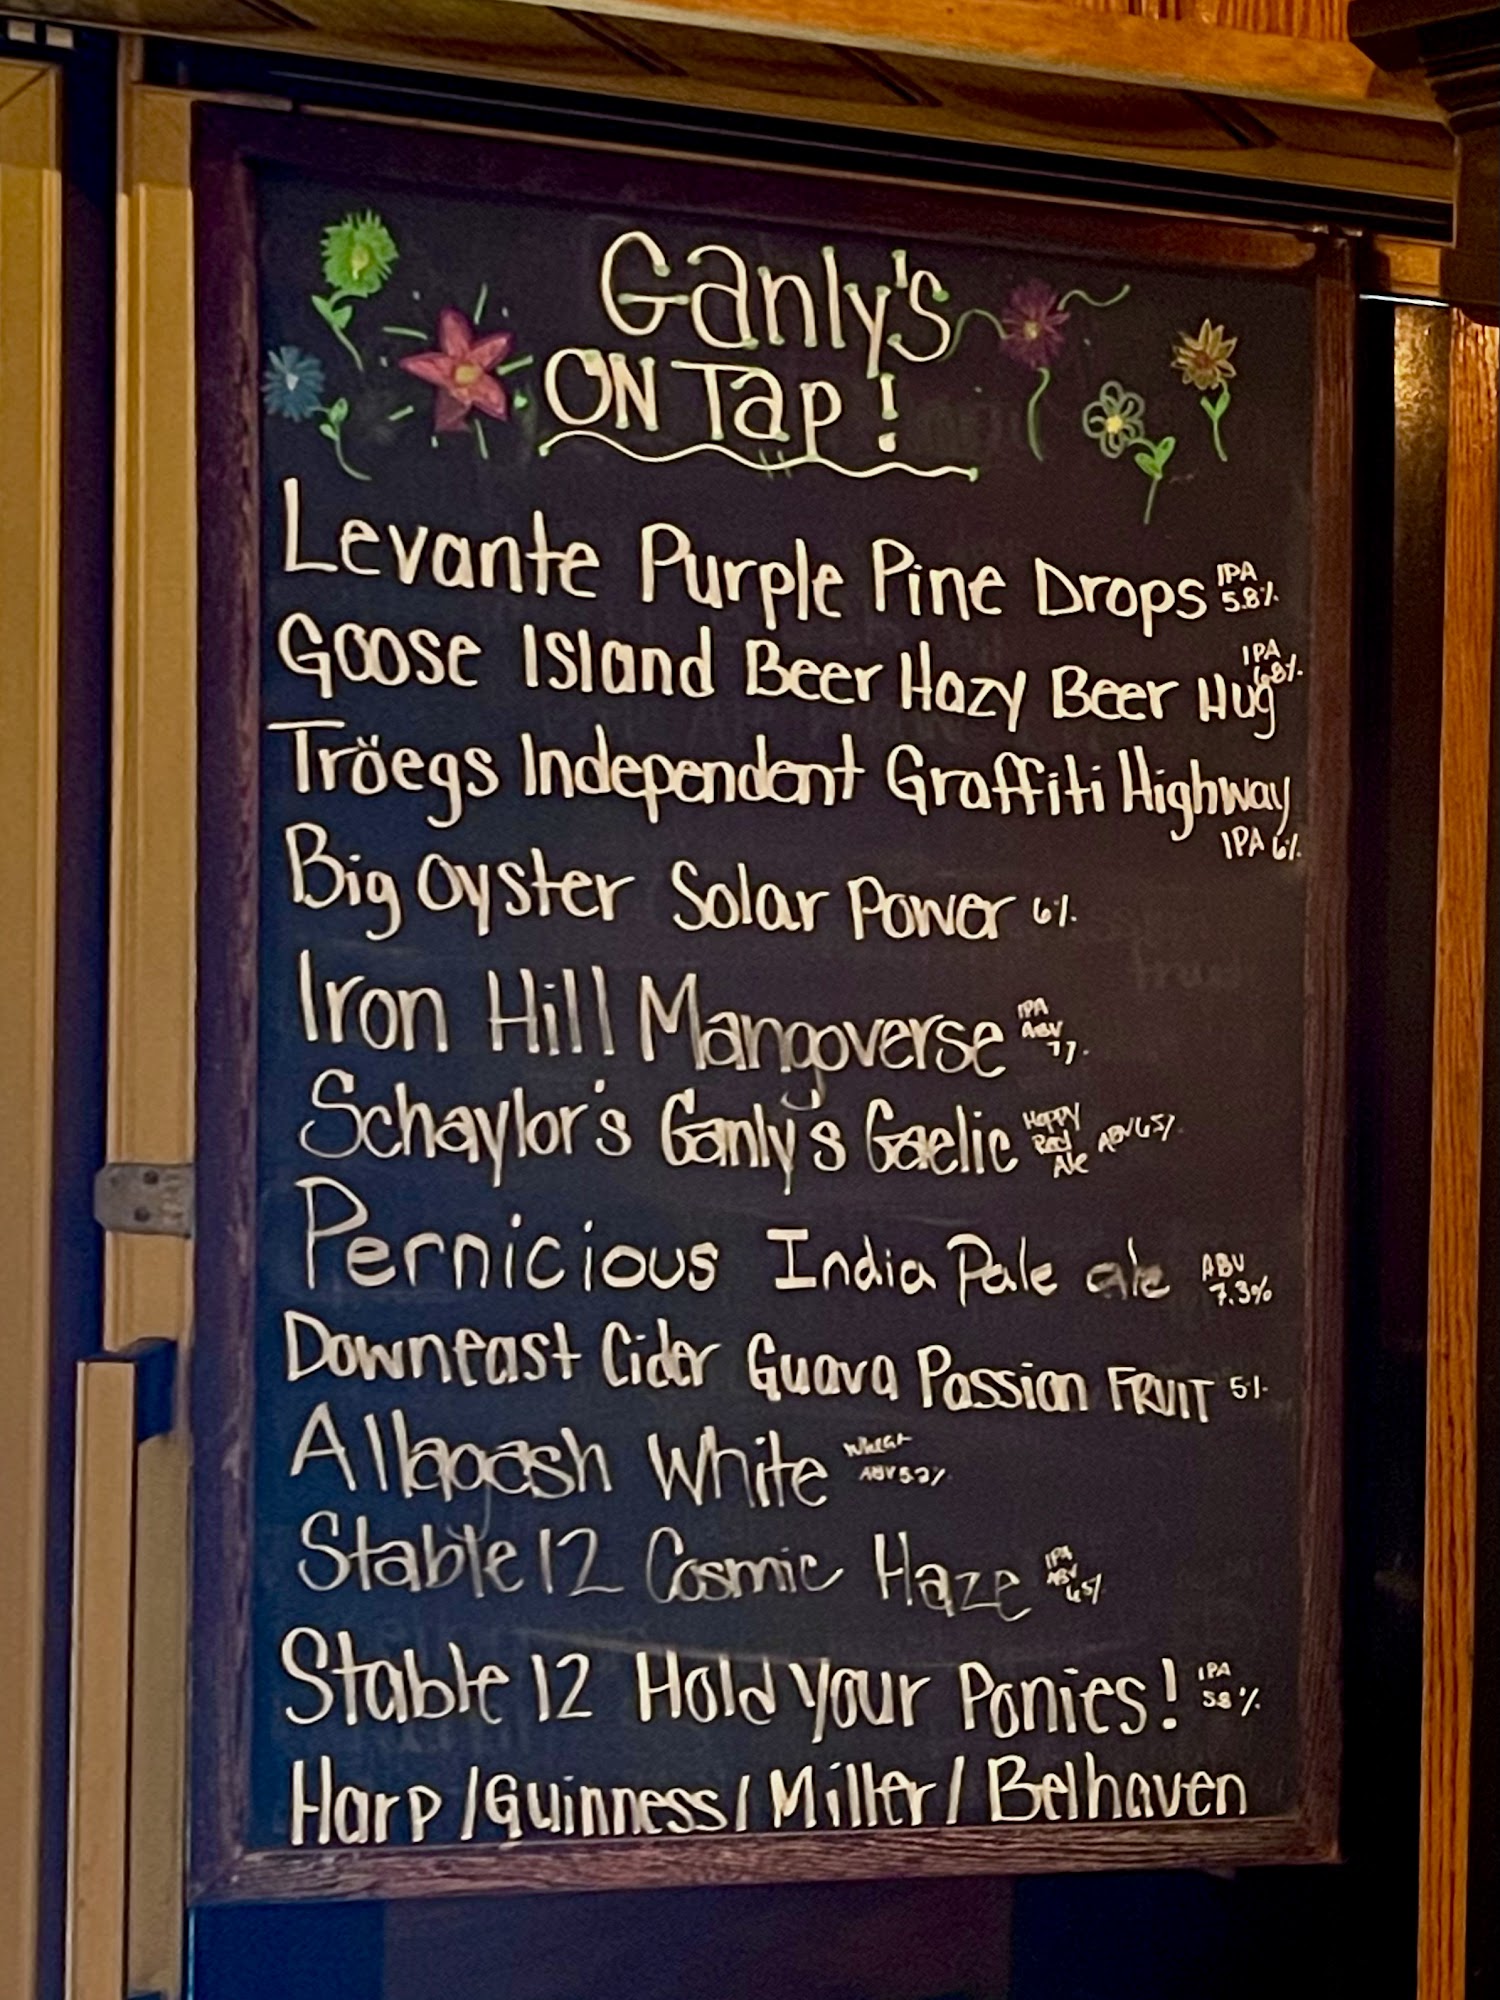 Ganly's
ON Tap!
Levante Purple Pine Drops IPA 5.8%
Goose Island Beer Hazy Beer Hug IPA 6.8%
Tröegs Independent Graffiti Highway
IPA 6%
Big Oyster Solar Power 6%
Iron Hill Mangoverse IPA ABV
Schaylor's Ganly's Gaelic Hoppy Red Ale ABV 6.5%
Pernicious India Pale ale ABV 7.3%
Downeast Cider Guava Passion FRUIT 5%
Allagash White Wheat ABV 5.2%
Stable 12 Cosmic Haze IPA ABV 6.5%
Stable 12 Hold your Ponies! IPA 5.8%
Harp/Guinness/Miller/Belhaven